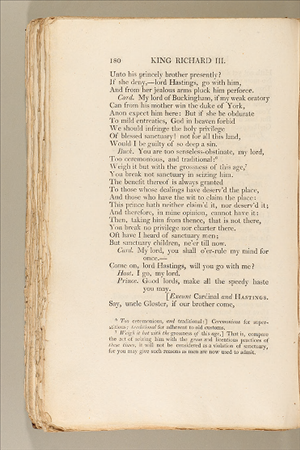 180 KING RICHARD III.
Unto his princely brother presently?
If she deny,—lord Hastings, go with him,
And from her jealous arms pluck him perforce.
Card. My lord of Buckingham, if my weak oratory
Can from his mother win the duke of York,
Anon expect him here: But if she be obdurate
To mild entreaties, God in heaven forbid
We should infringe the holy privilege
Of blessed sanctuary! not for all this land,
Would I be guilty of so deep a sin.
Buck. You are too senseless-obstinate, my lord,
Too ceremonious, and traditional:⁶
Weigh it but with the grossness of this age,⁷
You break not sanctuary in seizing him.
The benefit thereof is always granted
To those whose dealings have deserv'd the place,
And those who have the wit to claim the place:
This prince hath neither claim'd it, nor deserv'd it;
And therefore, in mine opinion, cannot have it:
Then, taking him from thence, that is not there,
You break no privilege nor charter there.
Oft have I heard of sanctuary men;
But sanctuary children, ne'er till now.
Card. My lord, you shall o'er-rule my mind for
once.—
Come on, lord Hastings, will you go with me?
Hast. I go, my lord.
Prince. Good lords, make all the speedy haste
you may.
[Exeunt Cardinal and HASTINGS.
Say, uncle Gloster, if our brother come,
⁶ Too ceremonious, and traditional:] Ceremonious for super-
stitious; traditional for adherent to old customs.
⁷ Weigh it but with the grossness of this age,] That is, compare
the act of seizing him with the gross and licentious practices of
these times, it will not be considered as a violation of sanctuary,
for you may give such reasons as men are now used to admit.